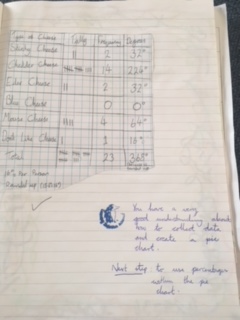 Type of Cheese Tally Frequency Degrees
Stinky Cheese || 2 32°
Cheddar Cheese 14 224°
Cheese || 2 32°
Blue Cheese 0 0°
Mouse Cheese |||| 4 64°
Don't like Cheese | 1 16°
Total 23 368°
You have a very
good understanding about
how to collect data
and create a pie
chart.
Next step to use percentages
within the pie
chart.